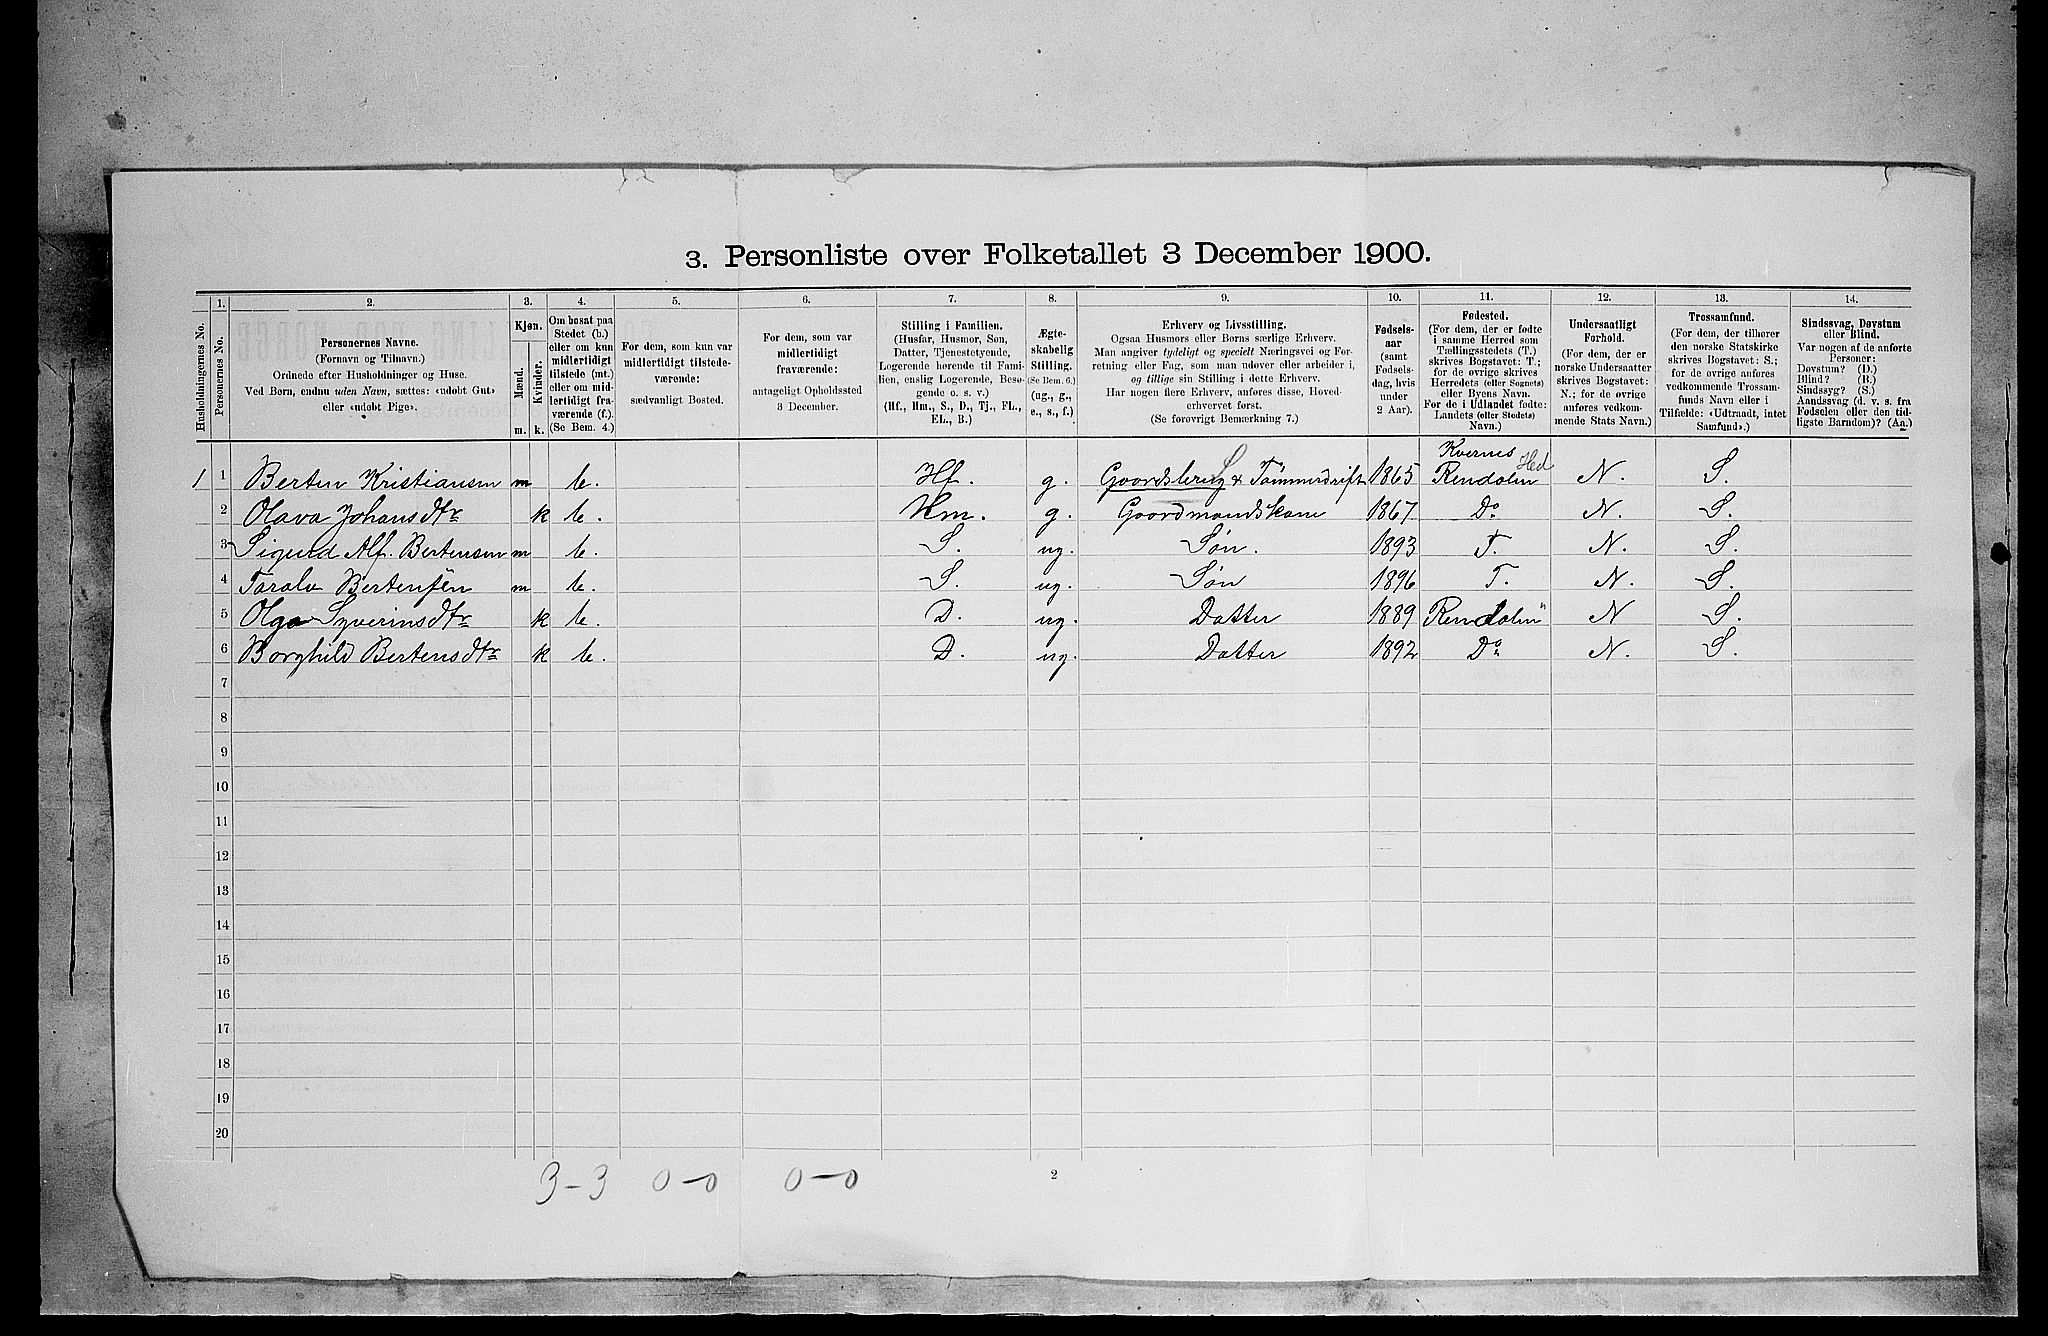 3. Personliste over Folketallet 3 December 1900.
Husholdningernes No.
1.
Personernes No.
2.
Personernes Navne.
(Fornavn og Tilnavn.)
Ordnede efter Husholdninger og Huse.
Ved Børn, endnu uden Navn, sættes: «udøbt Gut»
eller «udøbt Pige».
3.
Kjøn.
Mænd.
Kvinder.
m. k.
4.
Om bosat paa
Stedet (b.)
eller om kun
midlertidigt
tilstede (mt.)
eller om mid-
lertidigt fra-
værende (f.).
(Se Bem. 4.)
5.
For dem, som kun var
midlertidigt tilstede-
værende:
sædvanligt Bosted.
6.
For dem, som var
midlertidigt
fraværende:
antageligt Opholdssted
3 December.
7.
Stilling i Familien.
(Husfar, Husmor, Søn,
Datter, Tjenestetyende,
Logerende hørende til Fami-
lien, enslig Logerende, Besø-
gende o. s. v.)
(Hf., Hm., S., D., Tj., FL.,
EL., B.)
8.
Ægte-
skabelig
Stilling.
(Se Bem. 6.)
(ug., g.,
e., s., f.)
9.
Erhverv og Livsstilling.
Ogsaa Husmors eller Børns særlige Erhverv.
Man angiver tydeligt og specielt Næringsvei og For-
retning eller Fag, som man udøver eller arbeider i,
og tillige sin Stilling i dette Erhverv.
Har nogen flere Erhverv, anføres disse, Hoved-
erhvervet først.
(Se forøvrigt Bemærkning 7.)
10.
Fødsels-
aar
(samt
Fødsels-
dag, hvis
under
2 Aar).
11.
Fødested.
(For dem, der er fødte
i samme Herred som
Tællingsstedets (T.)
skrives Bogstavet: T.;
for de øvrige skrives
Herredets (eller Sognets)
eller Byens Navn.
For de i Udlandet fødte:
Landets (eller Stedets)
Navn.)
12.
Undersaatligt
Forhold.
(For dem, der er
norske Undersaatter
skrives Bogstavet:
N.; for de øvrige
anføres vedkom-
mende Stats Navn.)
13.
Trossamfund.
(For dem, der tilhører
den norske Statskirke
skrives Bogstavet: S.;
for de øvrige anføres
vedkommende Trossam-
funds Navn eller i
Tilfælde: «Udtraadt, intet
Samfund».)
14.
Sindssvag, Døvstum
eller Blind.
Var nogen af de anførte
Personer:
Døvstum? (D.)
Blind? (B.)
Sindssyg? (S.)
Aandssvag (d. v. s. fra
Fødselen eller den tid-
ligste Barndom)? (Aa.)
1 1 Berten Kristiansen m b. Hf. g. Gaardsbrug & Tømmerdrift 1865 Kvernes Rendalen Hed N. S.
2 Olava Johansdtr k b. Hm. g. Gaardmandskone 1867 Do N. S.
3 Sigurd Alf. Bertensen m b. S. ug. Søn. 1893 T. N. S.
4 Toralv Bertensen m b. S. ug. Søn 1896 T. N. S.
5 Olga Syverinsdtr k b. D. ug. Datter 1889 Rendalen N S.
6 Borghild Bertensdtr k b. D. ug. Datter 1892 Do N. S.
7
8
9
10
11
12
13
14
15
16
17
18
19
20
3-3 0-0 0-0
2